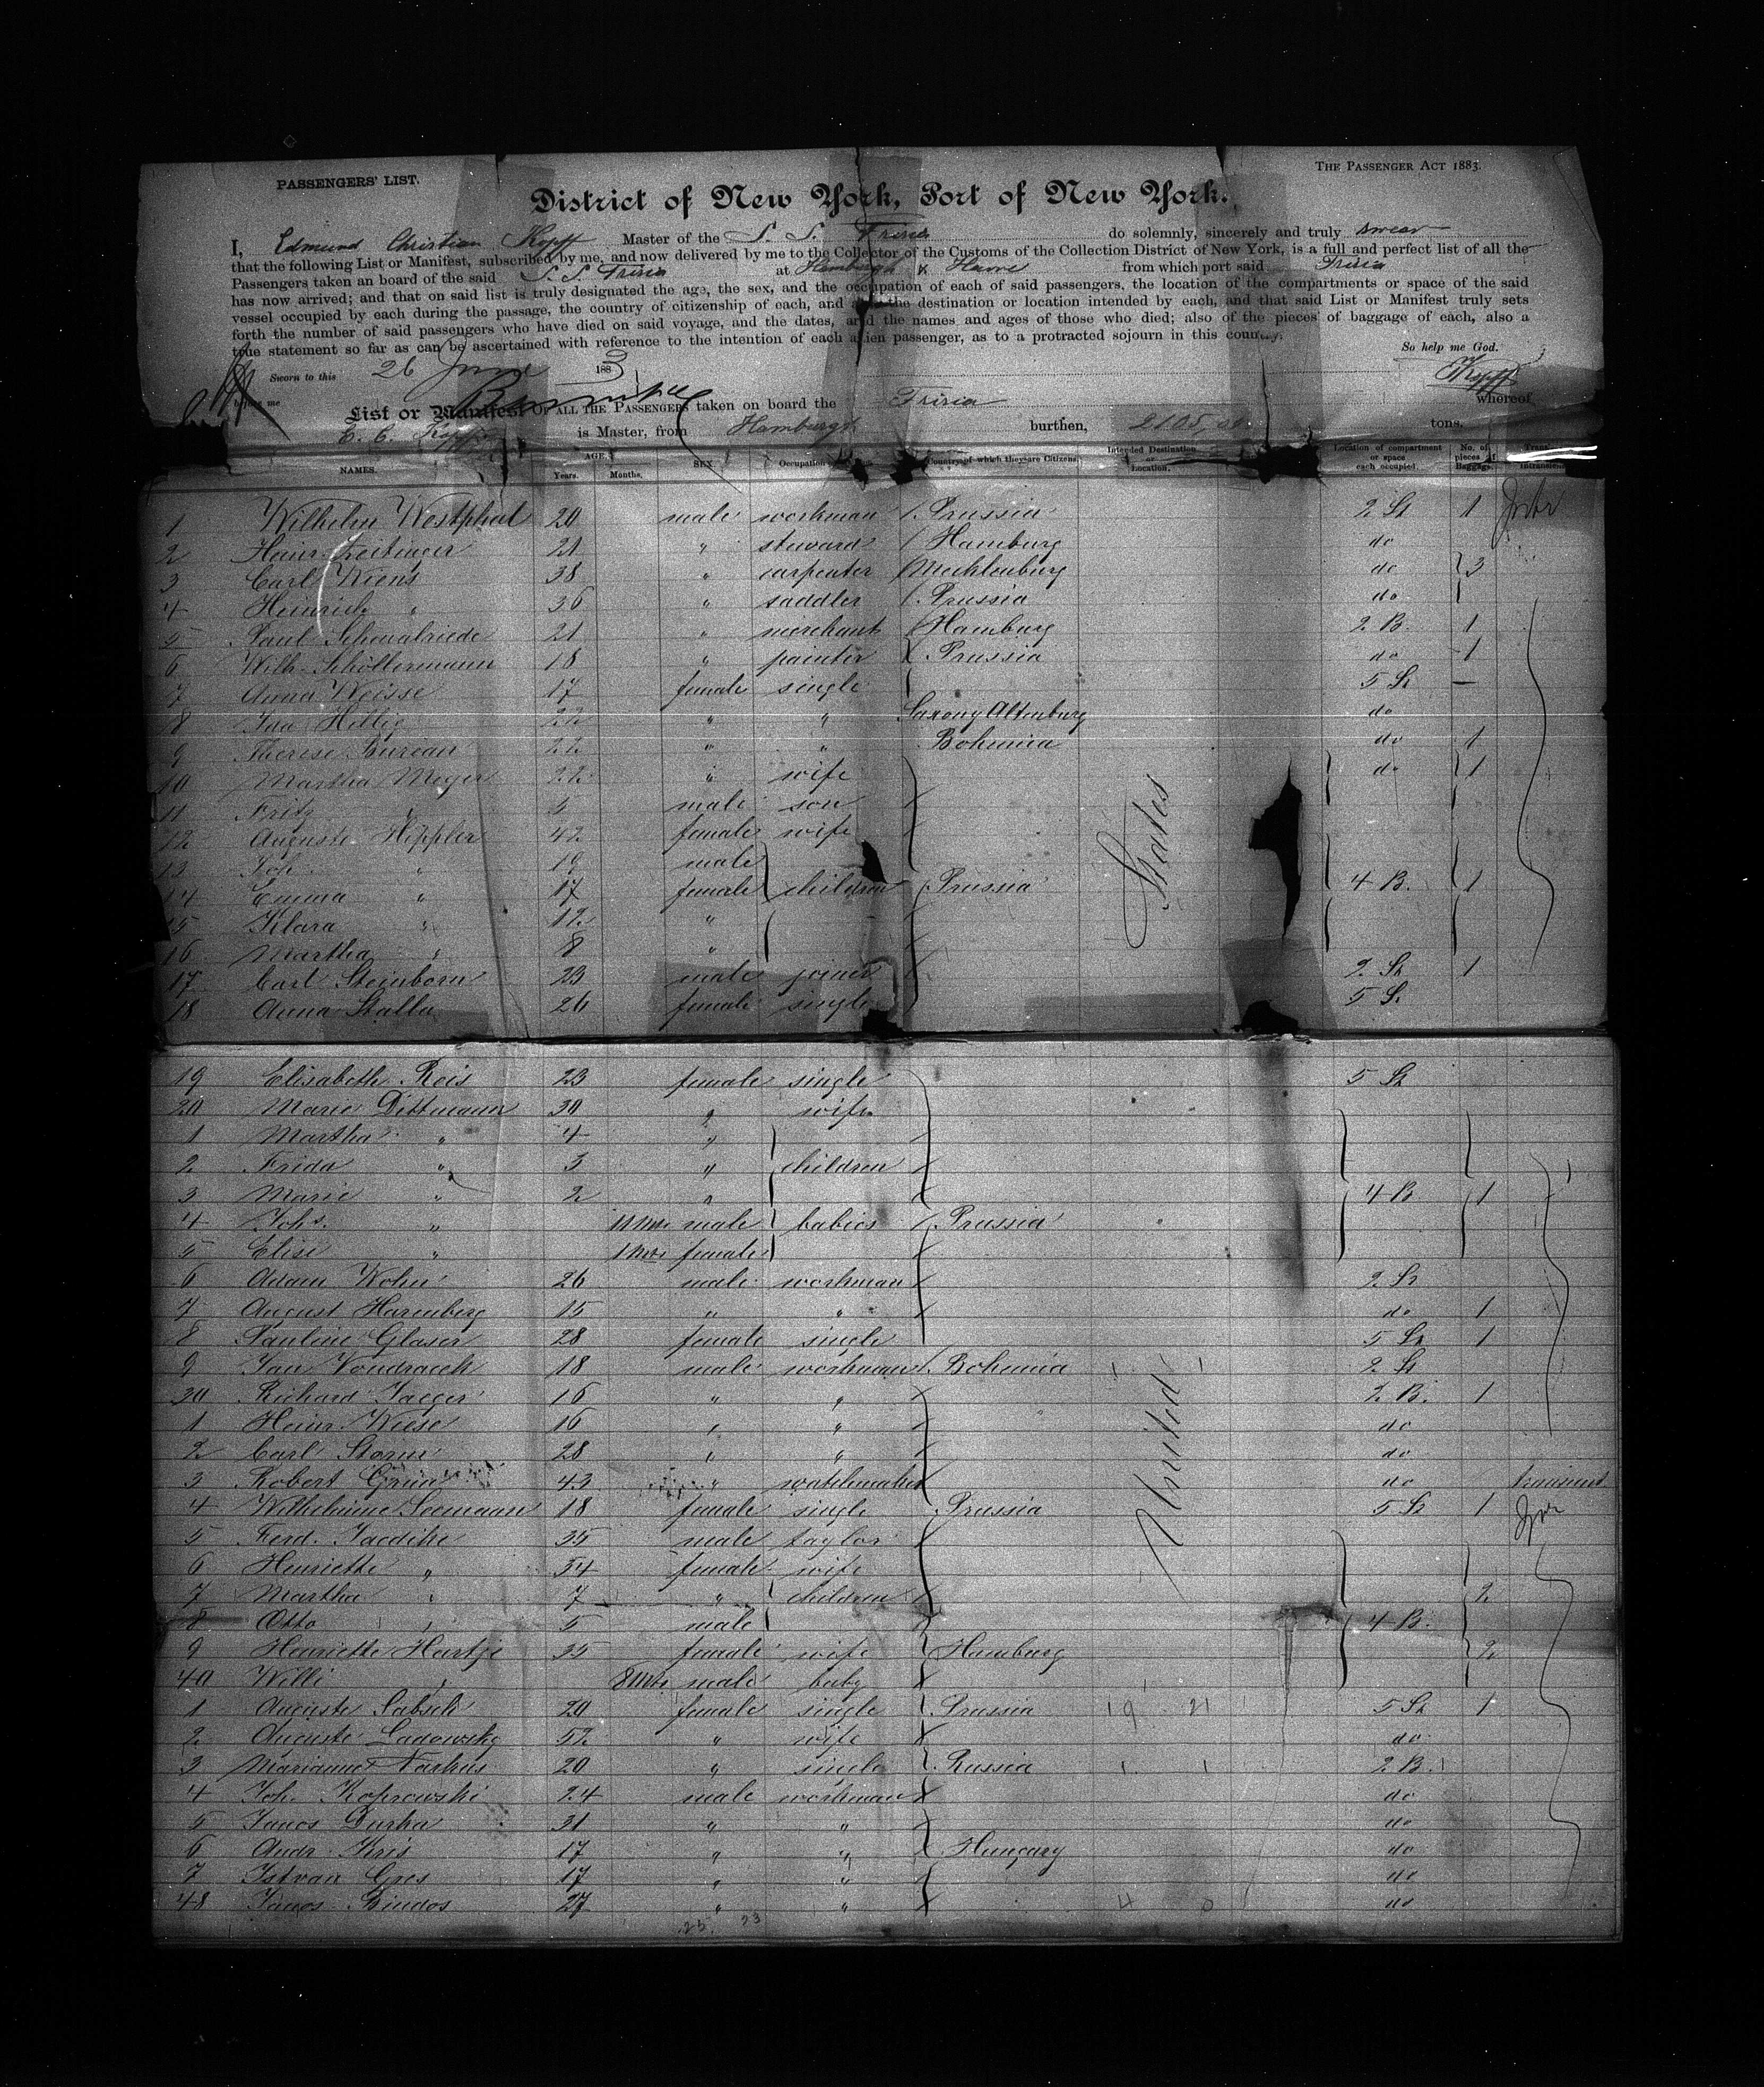 PASSENGERS' LIST.
THE PASSENGER ACT 1883.
District of New York, Port of New York.
I, Edmund Christian Kopff Master of the S. S. Frisia do solemnly, sincerely and truly swear
that the following List or Manifest, subscribed by me, and now delivered by me to the Collector of the Customs of the Collection District of New York, is a full and perfect list of all the
Passengers taken an board of the said S. S. Frisia at Hamburgh & Havre from which port said Frisia
has now arrived; and that on said list is truly designated the age, the sex, and the occupation of each of said passengers, the location of the compartments or space of the said
vessel occupied by each during the passage, the country of citizenship of each, and also the destination or location intended by each, and that said List or Manifest truly sets
forth the number of said passengers who have died on said voyage, and the dates, and the names and ages of those who died; also of the pieces of baggage of each, also a
true statement so far as can be ascertained with reference to the intention of each alien passenger, as to a protracted sojourn in this country.
So help me God.
Sworn to this 26 June 1883 Kopff
before me
List or Manifest OF ALL THE PASSENGERS taken on board the Frisia whereof
E. C. Kopff is Master, from Hamburgh burthen, 2105, tons.
NAMES. AGE. Years. Months. SEX. Occupation Country of which they are Citizens. Intended Destination or Location. Location of compartment or space each occupied. No. of pieces of Baggage.
1 Wilhelm Westphal 20 male workman Prussia 2 St 1
2 Heinr. Reitinger 21 " steward Hamburg do
3 Carl Wiens 38 " carpenter Mecklenburg do 3
4 Heinrich " 36 " saddler Prussia do
5 Paul Schwalriede 21 " merchant Hamburg 2 B. 1
6 Wilh. Schöltermann 18 " painter Prussia do 1
7 Anna Weisse 17 female single 5 St —
8 Ida Hillig 22 " " Saxony Altenburg do
9 Therese Burean 22 " " Bohemia do 1
10 Martha Meyer 22 " wife do 1
11 Fritz " 5 male son
12 Auguste Hippler 42 female wife
13 Joh. " 19 male
14 Emma " 17 female children Prussia 4 B. 1
15 Klara " 12 "
16 Martha " 8 "
17 Carl Steinborn 23 male joiner 2 St 1
18 Anna Stalla 26 female single 5 St
States
19 Elisabeth Reis 23 female single 5 St
20 Marie Dittmann 30 " wife
1 Martha " 4 "
2 Frida " 3 " children
3 Marie " 2 " 4 B 1
4 Johs. " 11 Mts male babies Prussia
5 Elise " 1 Mts female
6 Adam Kohn 26 male workman 2 St
7 August Harenberg 15 " " do 1
8 Pauline Glaser 28 female single 5 St 1
9 Jan Vondracek 18 male workman Bohemia 2 St
30 Richard Jaeger 16 " " 2 B. 1
1 Heinr. Wiese 16 " " do
2 Carl Storm 28 " " do
3 Robert Grün 43 " watchmaker do transient
4 Wilhelmine Seemann 18 female single Prussia 5 St 1
United
5 Ferd. Jaedike 35 male taylor
6 Henriette " 34 female wife
7 Martha " 7 " children 2
8 Otto " 5 male 4 B.
9 Henriette Hartje 35 female wife Hamburg 2
40 Willi " 8 Mts male baby
1 Auguste Sabsch 20 female single Prussia 19 21 5 St 1
2 Auguste Ladowsky 52 " wife do
3 Marianne Narkus 20 " single Russia 1 1 2 B. 1
4 Joh. Koprowski 24 male workman do
5 Janos Durha 31 " " do
6 Andr. Kris 17 " " Hungary do
7 Istvan Gres 17 " " do
48 Janos Bindos 27 " " 4 0 do
25 23